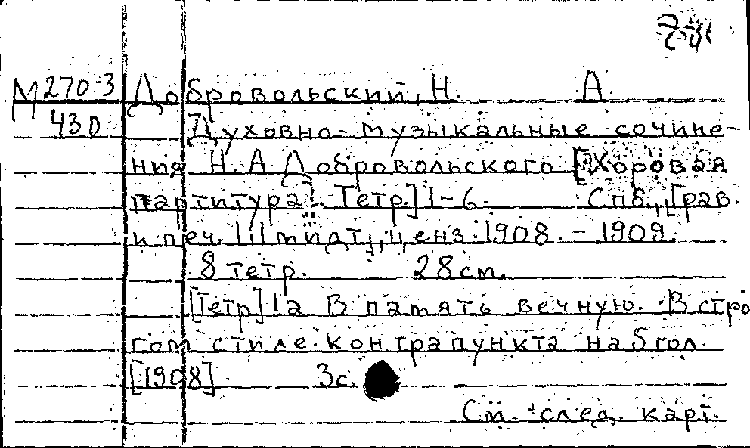 М 270-3 Добровольский, Н. А.
430 Духовно-музыкальные сочине-
ния Н. А. Добровольского [Хоровая
партитура]. [Тетр] 1-6. Спб., Грав.
и печ. Шмидт, ценз. 1908. - 1909.
8 тетр. 28 см.
[Тетр] 1а В память вечную. В стро
гом стиле контрапункта на 5 гол.
[1908] 3с.
См. след. карт.